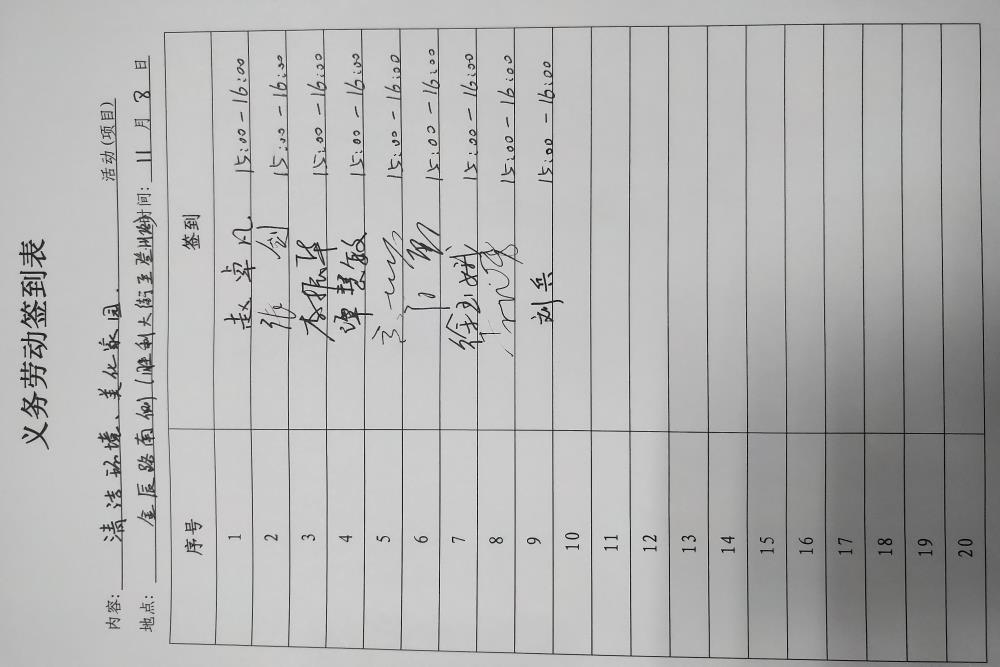 义务劳动签到表
内容: 清洁环境、美化家园. 活动(项目)
地点: 金辰路南侧(胜利大街至登州路) 时间: 11 月 8 日
序号 签到
1 赵卓凡 15:00-16:00
2 张剑 15:00-16:00
3 李振华 15:00-16:00
4 谭慧敏 15:00-16:00
5 15:00-16:00
6 15:00-16:00
7 徐玉娥 15:00-16:00
8 15:00-16:00
9 刘兵 15:00-16:00
10
11
12
13
14
15
16
17
18
19
20